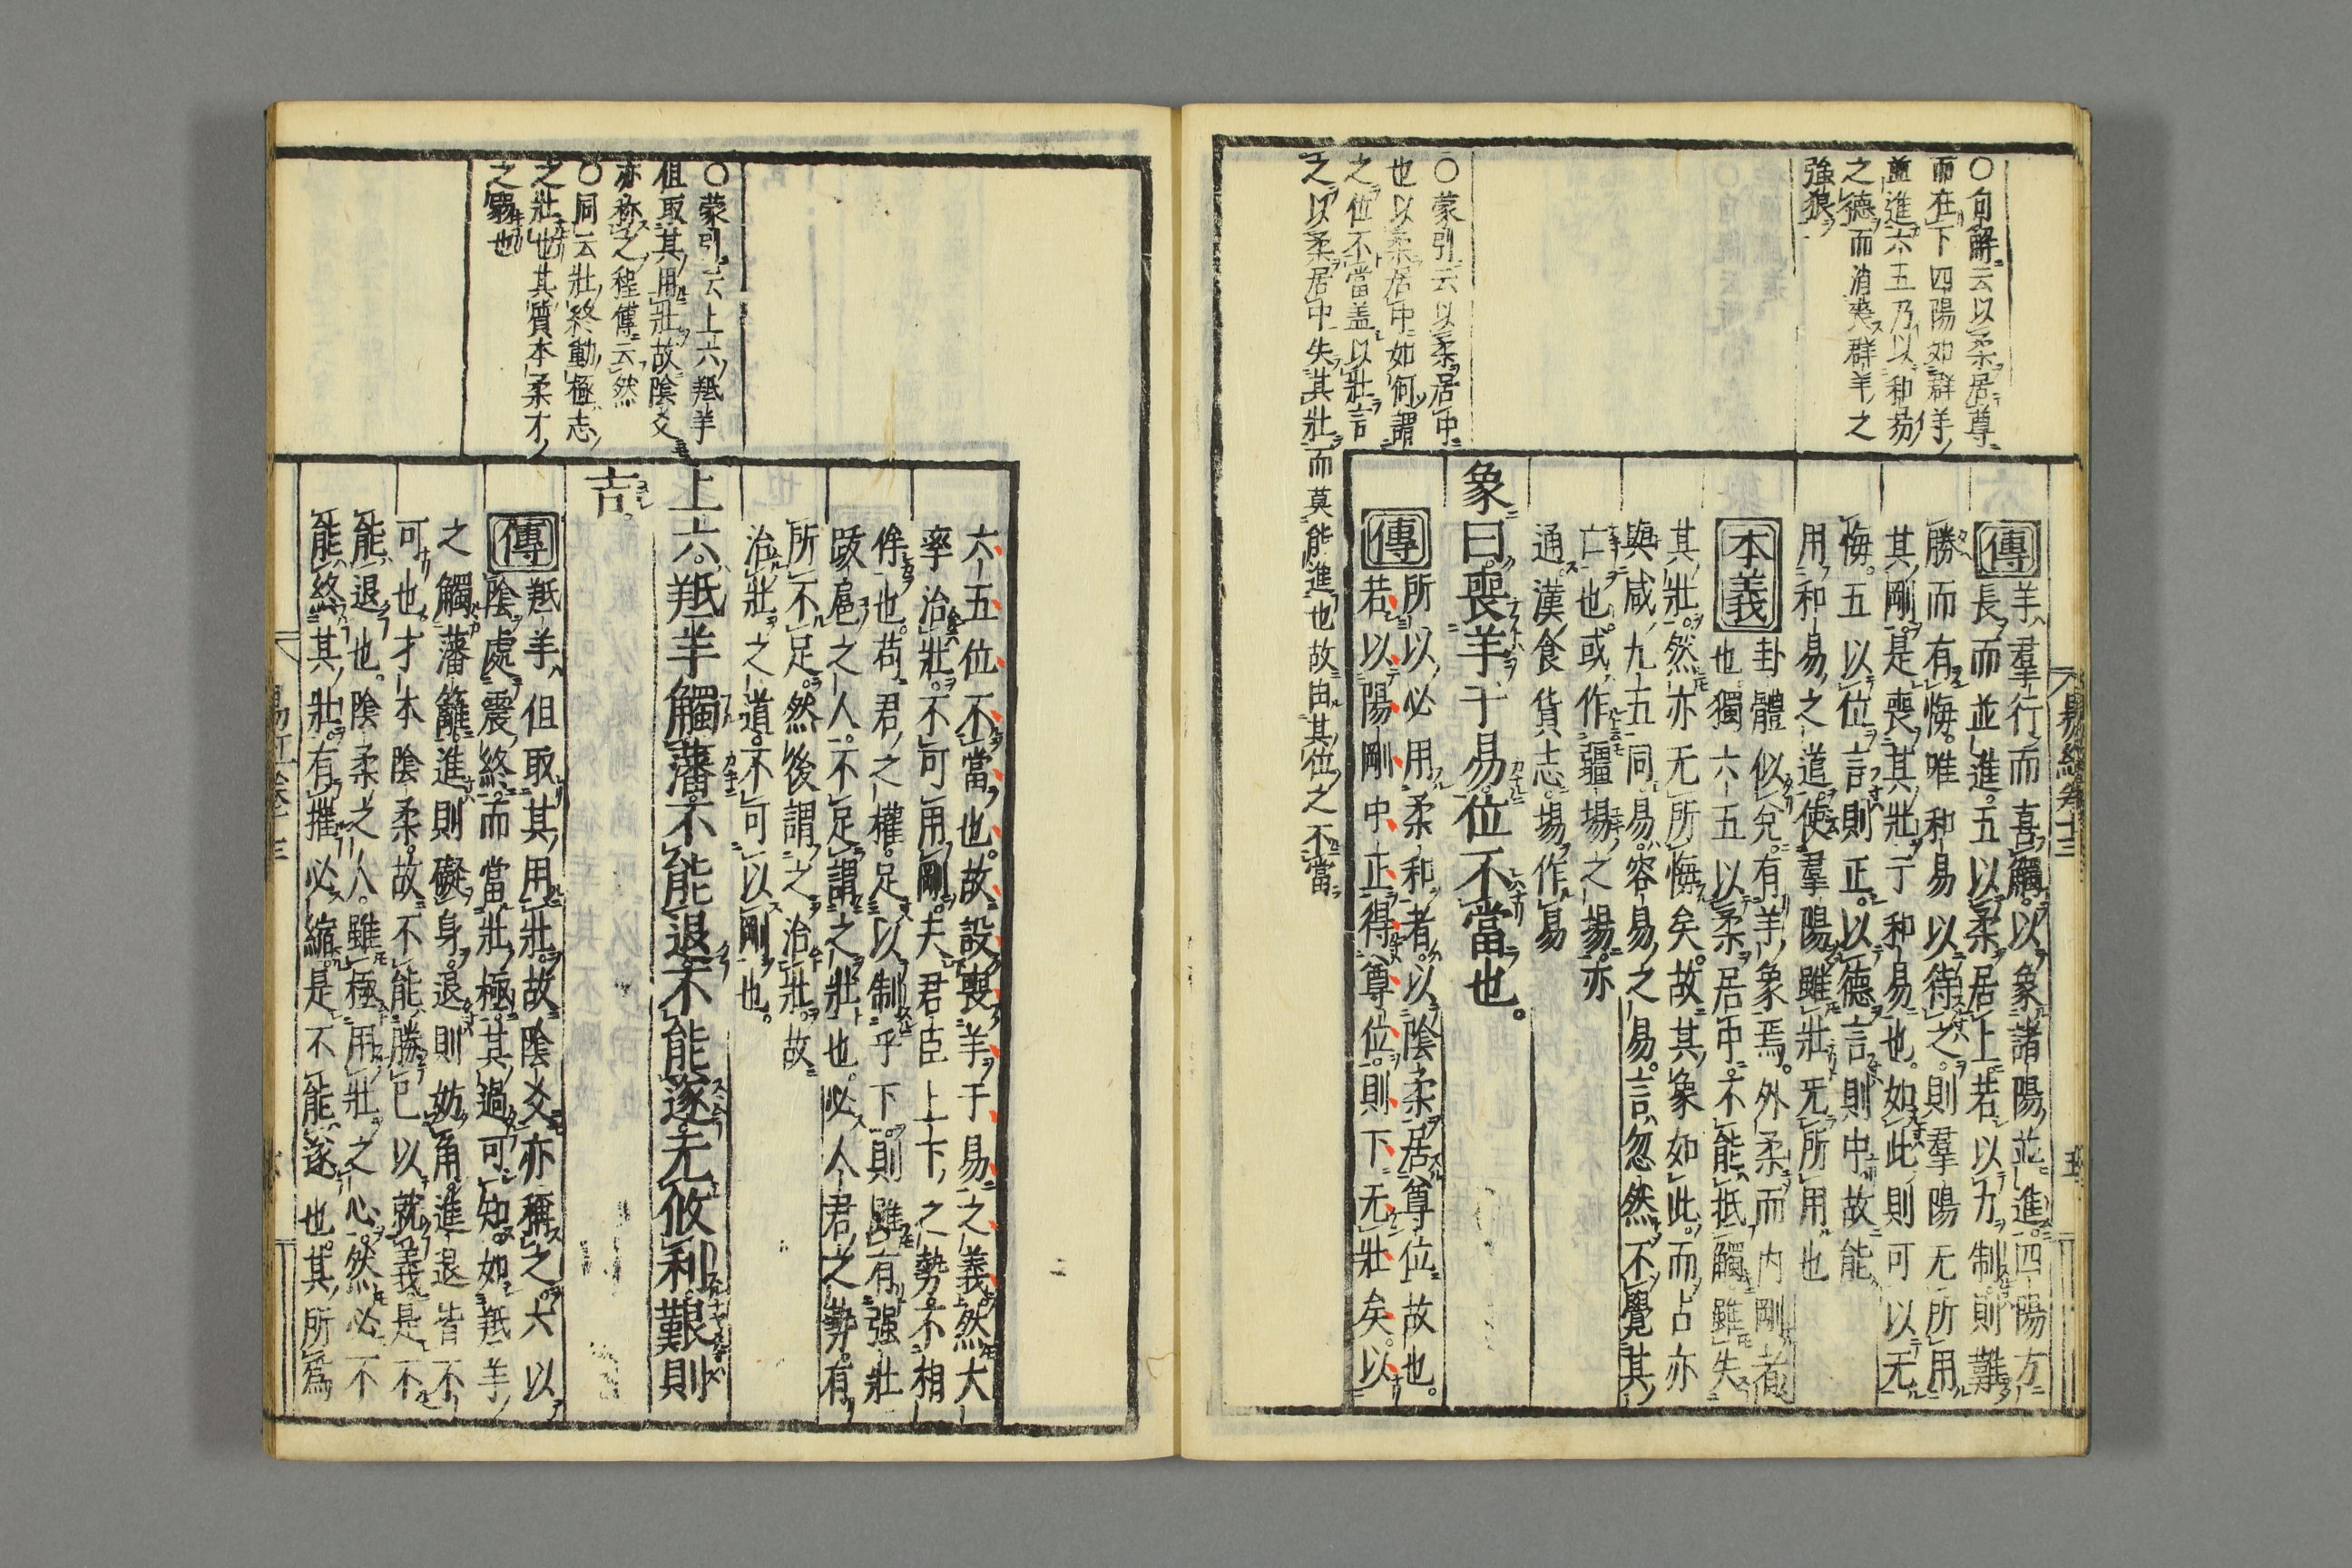 ○句解云以柔居尊
而在下四陽如群羊
並進六五乃以和易
之德而消喪群羊之
強狠
○蒙引云以柔居中
也以柔居中如何謂
之位不當盖以壯言
之以柔居中失其壯而莫能進也故由其位之不當
傳羊羣行而喜觸以象諸陽並進四陽方
長而並進五以柔居上若以力制則難
勝而有悔唯和易以待之則羣陽无所用
其剛是喪其壯于和易也如此則可以无
悔五以位言則正以德言則中故能
用和易之道使羣陽雖壯无所用也
本義卦體似兌有羊象焉外柔而内剛者
也獨六五以柔居中不能抵觸雖失
其壯然亦无所悔矣故其象如此而占亦
與咸九五同易容易之易言忽然不覺其
亡也或作疆場之場亦
通漢食貨志場作易
象曰喪羊于易位不當也
傳所以必用柔和者以陰柔居尊位故也
若以陽剛中正得尊位則下无壯矣以
○蒙引云上六羝羊
但取其用壯故陰爻
亦称之程傳云然
○同云壯終動極志
之壯也其質本柔才
之弱也
六五位不當也故設喪羊于易之義然大
率治壯不可用剛夫君臣上下之勢不相
侔也苟君之權足以制乎下則雖有强壯
跋扈之人不足謂之壯也必人君之勢有
所不足然後謂之治壯故
治壯之道不可以剛也
上六羝羊觸藩不能退不能遂无攸利艱則
吉
傳羝羊但取其用壯故陰爻亦稱之六以
陰處震終而當壯極其過可知如羝羊
之觸藩籬進則礙身退則妨角進退皆不
可也才本陰柔故不能勝已以就義是不
能退也陰柔之人雖極用壯之心然必不
能終其壯有摧必縮是不能遂也其所爲